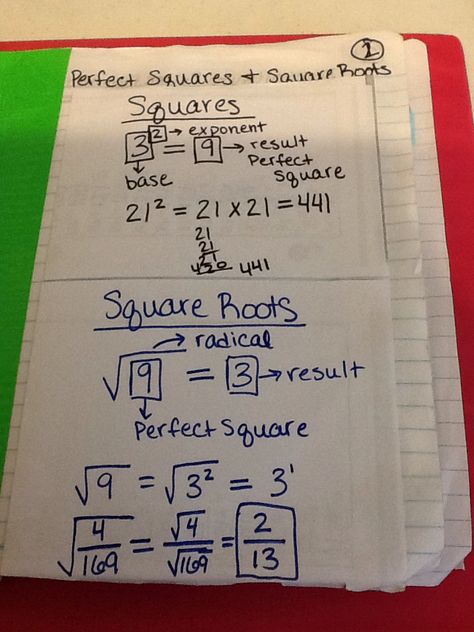 1
Perfect Squares + Square Roots
Squares
3² = 9 → result
→ exponent
Perfect Square
base
21² = 21 x 21 = 441
21
21
21
420 441
Square Roots
→ radical
√9 = 3 → result
Perfect Square
√9 = √3² = 3¹
√4/169 = √4/√169 = 2/13